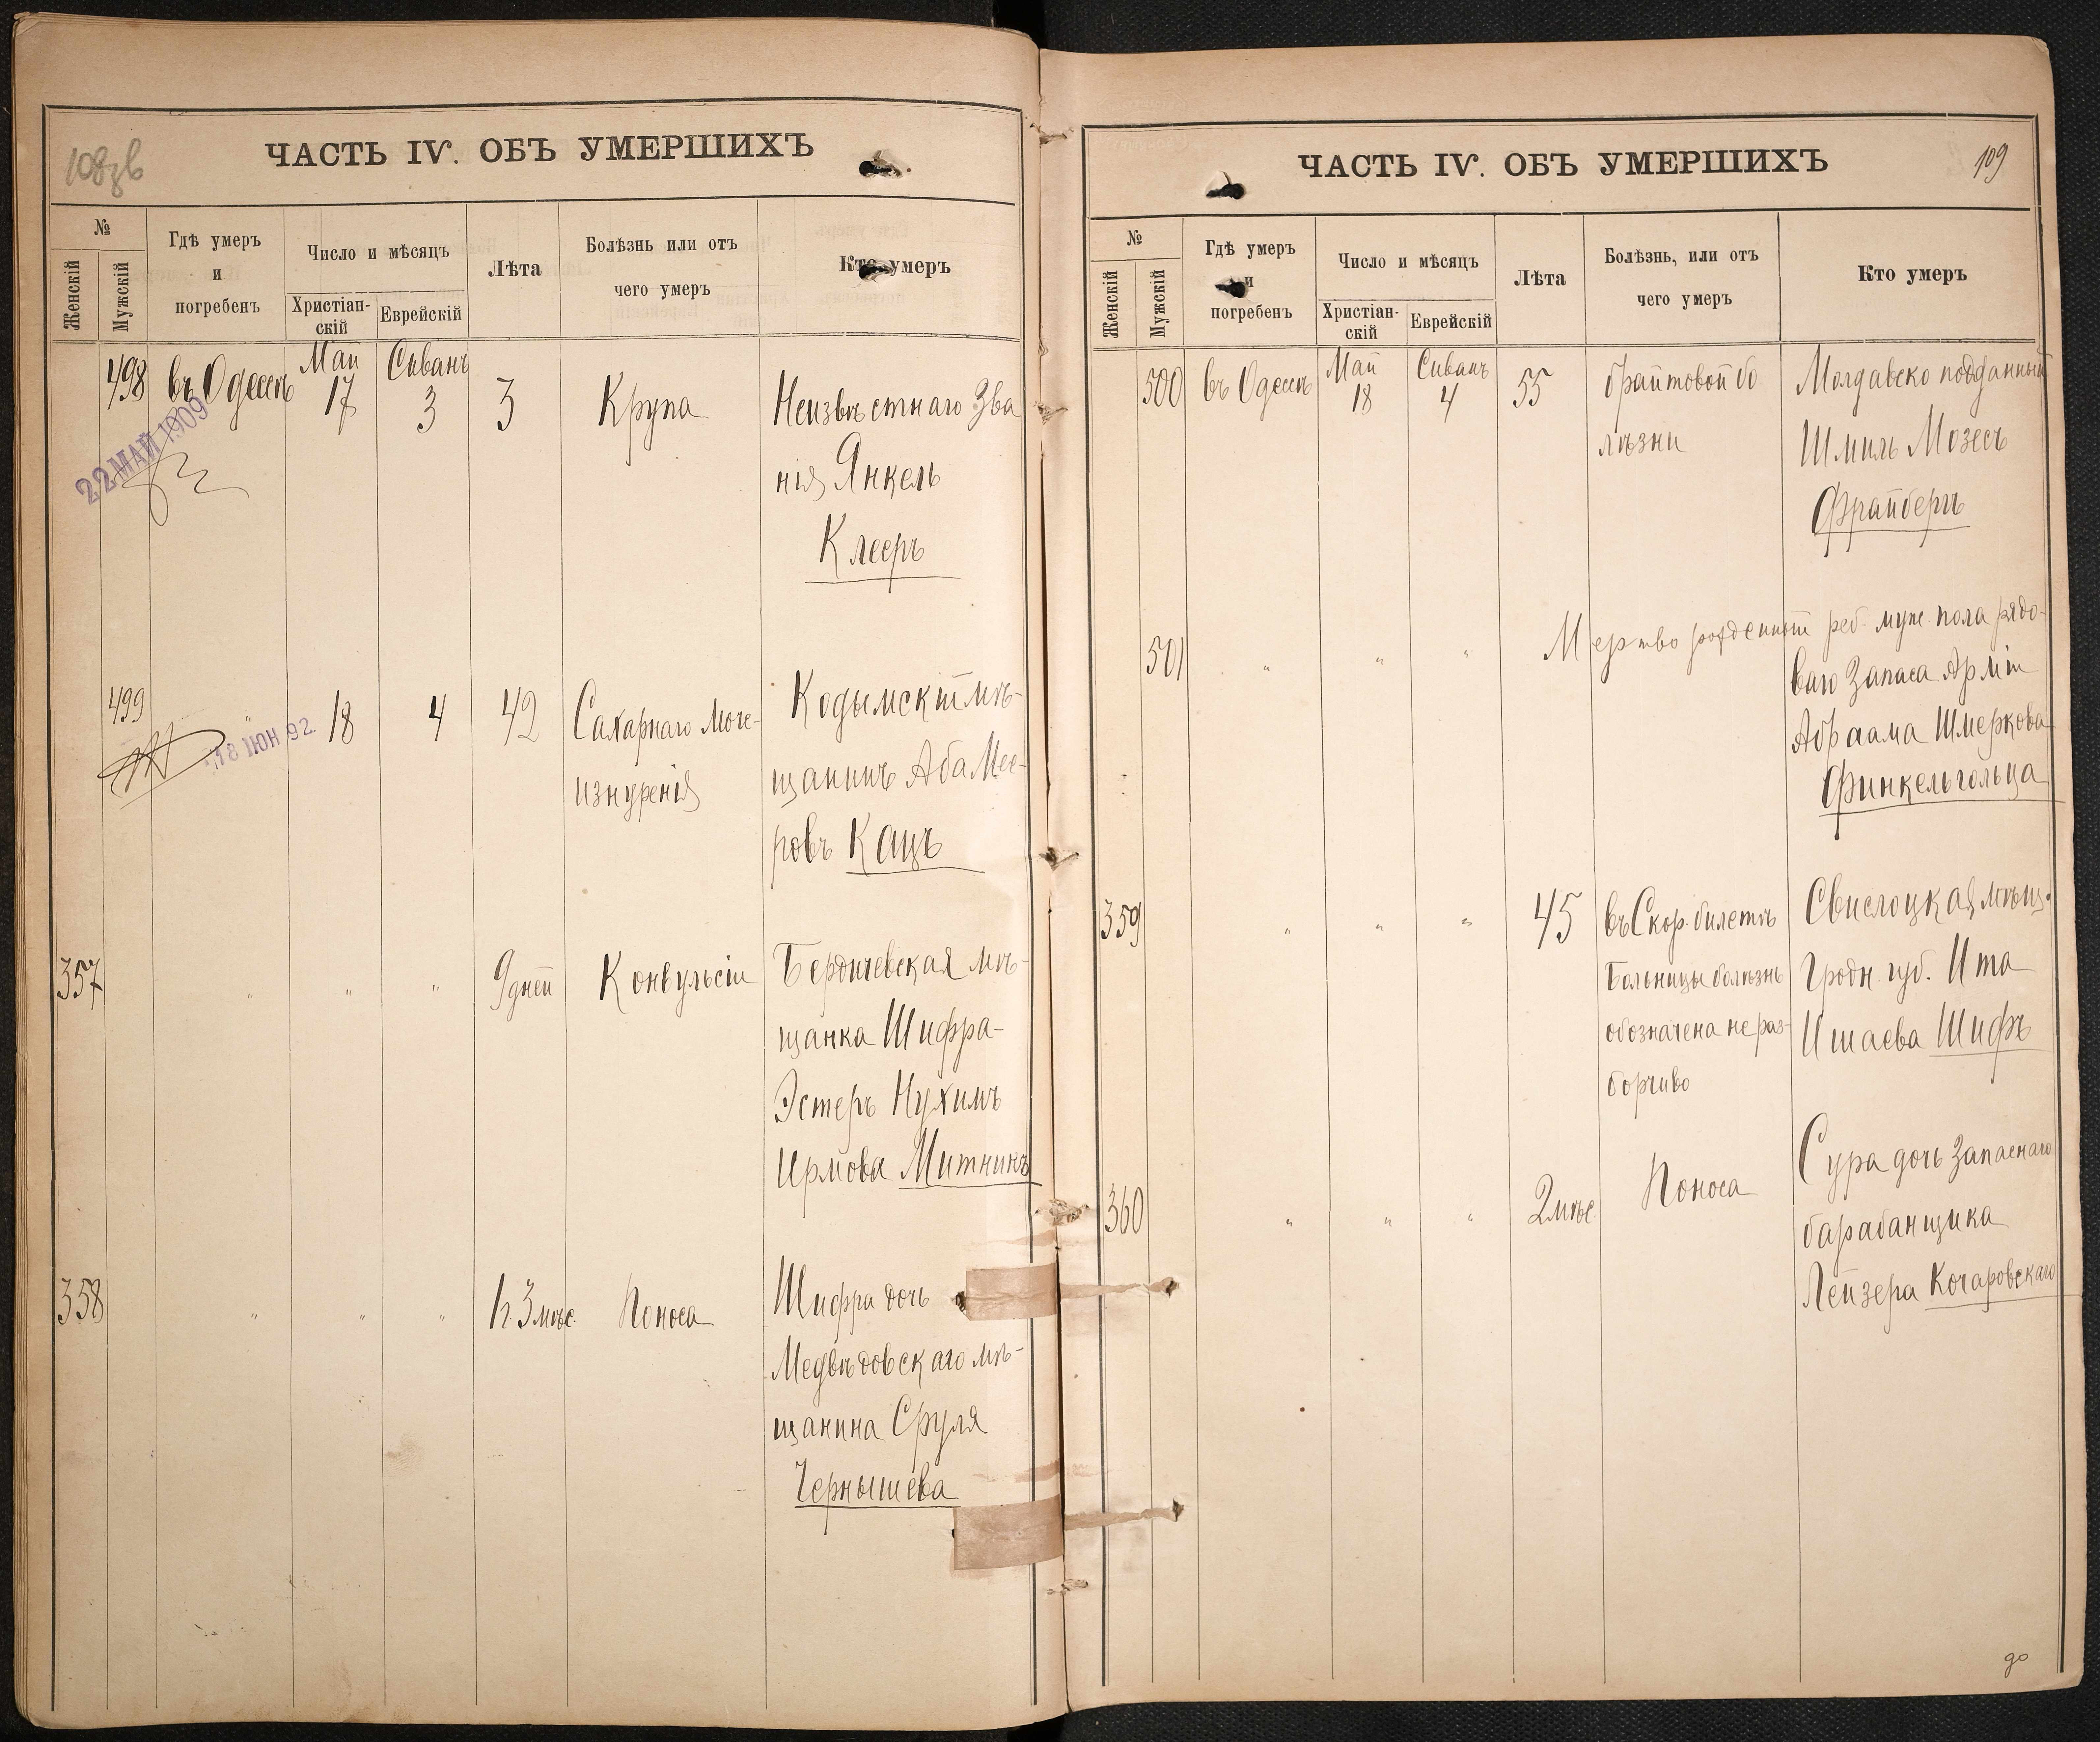 108 об
ЧАСТЬ IV. ОБЪ УМЕРШИХЪ
№
Женскій
Мужскій
Гдѣ умеръ
и
погребенъ
Число и мѣсяцъ
Христіан-
скій
Еврейскій
Лѣта
Болѣзнь или отъ
чего умеръ
Кто умеръ
498 въ Одессѣ Май 17 Сиванъ 3 3 Крупа Неизвѣстнаго Зва
нія Янкель
Клееръ
22 МАЙ 1909
499 " 18 4 42 Сахарнаго Моче- Кодымскій мѣ-
изнуренія щанинъ Аба Мее-
ровъ Кацъ
18 ІЮН 92.
357 " " " 9 дней Конвульсіи Бердичевская мѣ-
щанка Шифра-
Эстеръ Нухимъ
Ирмова Митникъ
358 " " " 3 мѣс. Поноса Шифра дочь
Медвѣдовскаго мѣ-
щанина Сруля
Чернышева
ЧАСТЬ IV. ОБЪ УМЕРШИХЪ
109
№
Женскій
Мужскій
Гдѣ умеръ
и
погребенъ
Число и мѣсяцъ
Христіан-
скій
Еврейскій
Лѣта
Болѣзнь, или отъ
чего умеръ
Кто умеръ
500 въ Одессѣ Май 18 Сиванъ 4 55 брайтовой бо Молдавско подданный
лѣзни Шмиль Мозесъ
Фрайбергъ
501 " " " Мертворожденный реб. муж. пола рядо-
ваго Запаса Арміи
Абраама Шмеркова
Финкельгольца
359 " " " 45 въ Скор. билетѣ Свислоцкая мѣщ.
Больницы болѣзнь Гродн. губ. Ита
обозначена не раз- Ишаева Шифъ
борчиво
360 " " " 2 мѣс Поноса Сура дочь Запаснаго
барабанщика
Лейзера Кочаровскаго
до